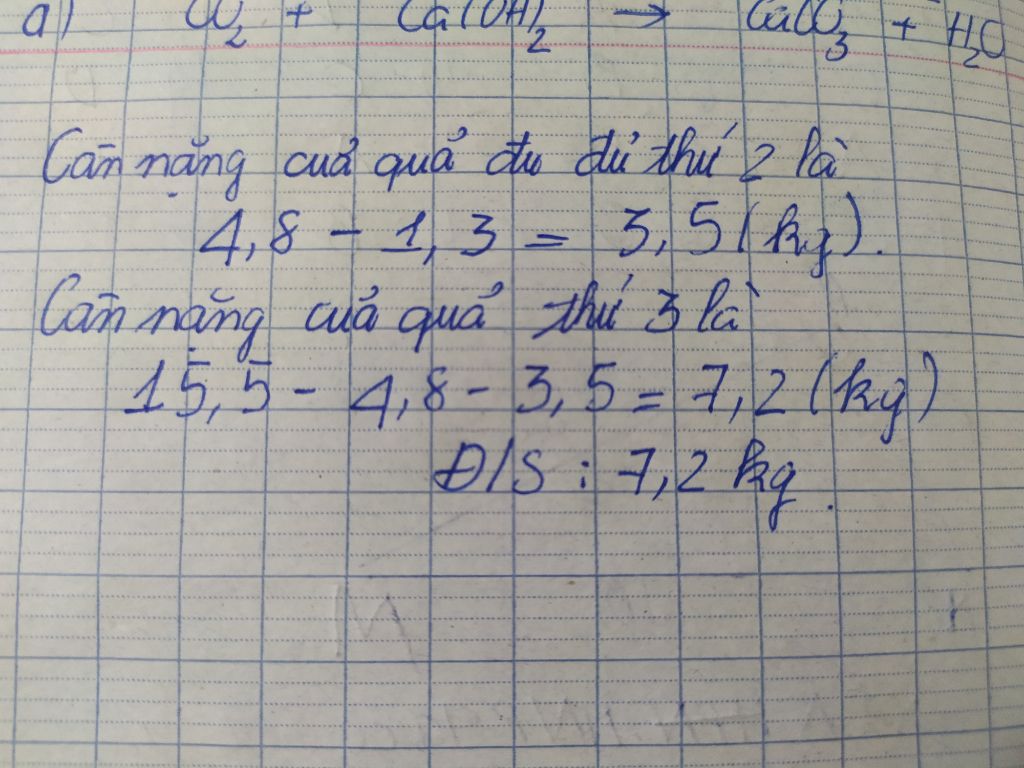 a) CO₂ + Ca(OH)₂ → CaCO₃ + H₂O
Cân nặng của quả đu đủ thứ 2 là
4,8 - 1,3 = 3,5 (kg).
Cân nặng của quả thứ 3 là
15,5 - 4,8 - 3,5 = 7,2 (kg)
Đ/S : 7,2 kg.